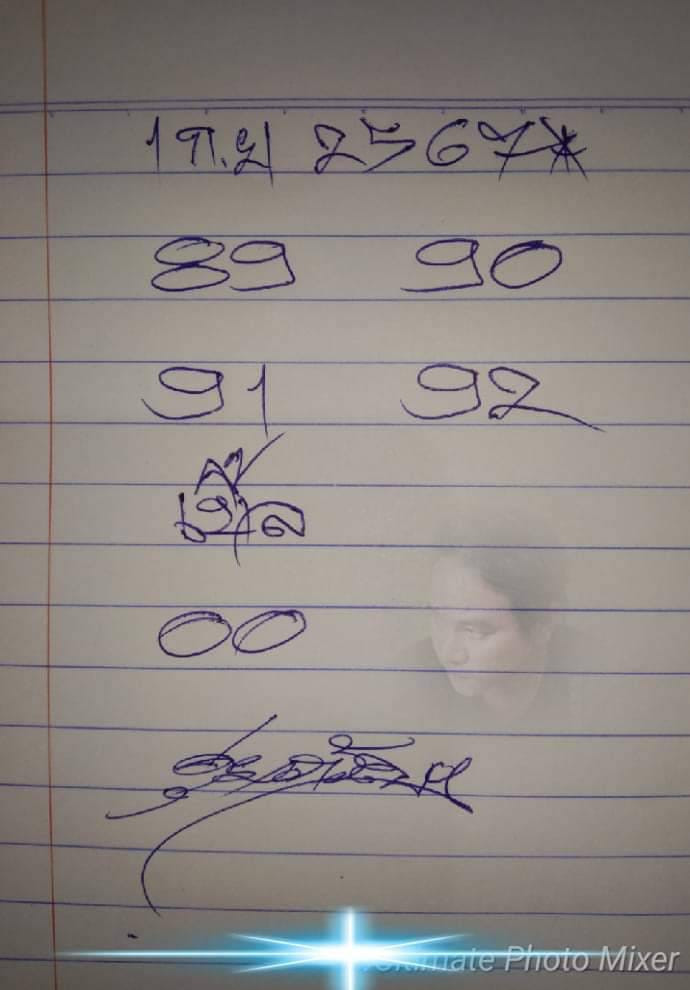 1 ก.ย 2567*
89 90
91 92
00
Ultimate Photo Mixer